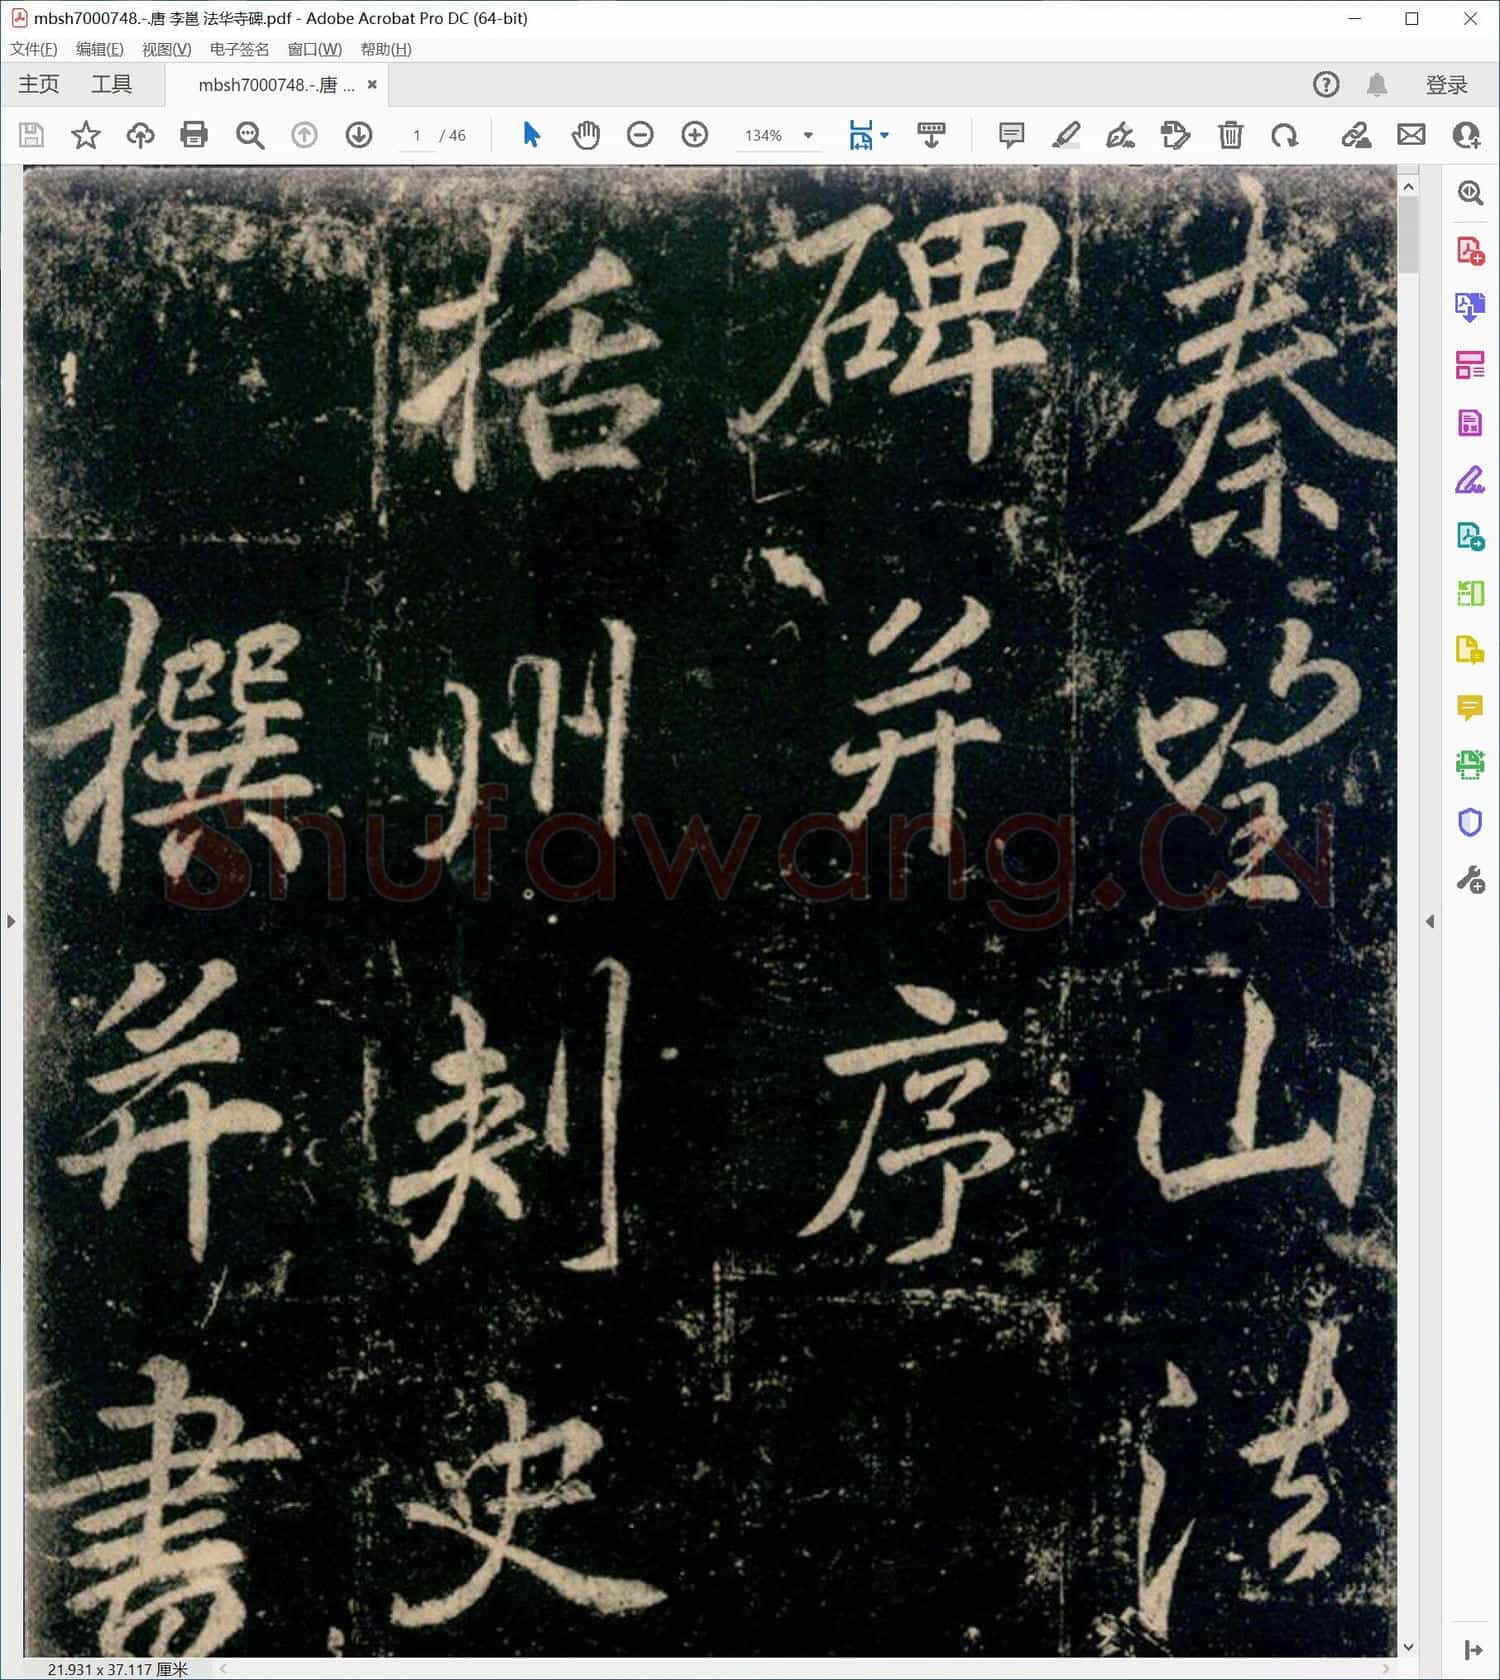 mbsh7000748.-.唐 李邕 法华寺碑.pdf - Adobe Acrobat Pro DC (64-bit)
文件(F) 编辑(E) 视图(V) 电子签名 窗口(W) 帮助(H)
主页 工具 mbsh7000748.-.唐 ... × 登录
1 / 46 134%
秦望山法
碑并序
括州刺史
撰并書
Shufawang.CN
21.931 x 37.117 厘米